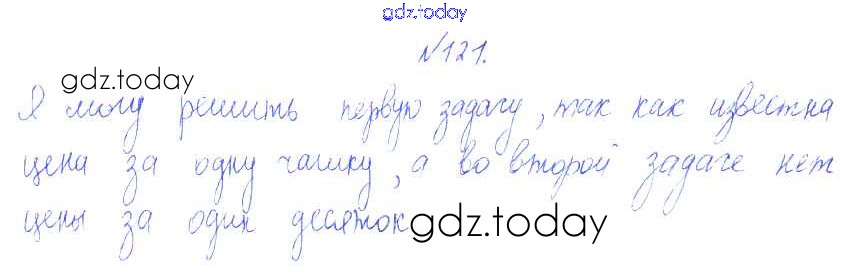 gdz.today
№121.
gdz.today
Я могу решить первую задачу, так как известна
цена за одну чашку, а во второй задаче нет
цены за один десяток
gdz.today